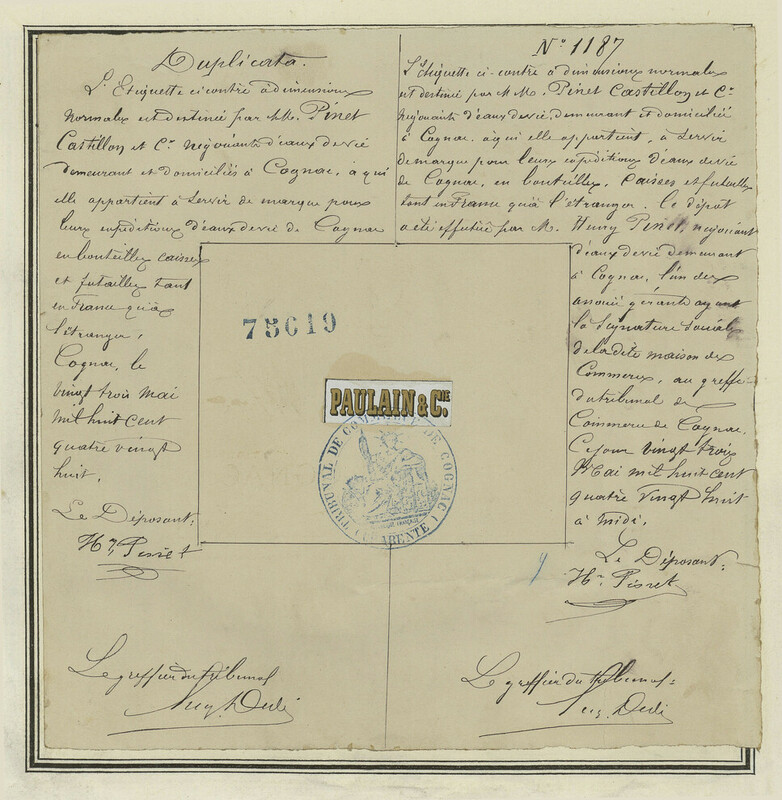 Duplicata.
L'Etiquette ci contre à dimensions
normales est destinée par M.M. Pinet
Castillon et Cie négociants d'eaux de vie
demeurant et domiciliés à Cognac, à qui
elle appartient à servir de marque pour
leurs expéditions d'eaux de vie de Cognac
en bouteilles caisses
et futailles tant
en France qu'à
l'étranger,
Cognac, le
vingt trois mai
mil huit cent
quatre vingt
huit.
Le Déposant:
Hy Pinet
Le greffier du tribunal
No 1187
L'Etiquette ci-contre à dimensions normales
est destinée par M.M. Pinet Castillon et Cie
négociants d'eaux de vie, demeurant et domiciliés
à Cognac, à qui elle appartient, à servir
de marque pour leurs expéditions d'eaux de vie
de Cognac, en bouteilles, caisses et futailles
tant en France qu'à l'étranger. Ce dépôt
a été effectué par M. Henry Pinet, négociant
d'eaux de vie demeurant
à Cognac, l'un des
associés gérants ayant
la signature sociale
de la dite maison de
Commerce, au greffe
du tribunal de
Commerce de Cognac.
Ce jour vingt trois
Mai mil huit cent
quatre vingt huit
à midi.
Le Déposant:
Hy Pinet
Le greffier du tribunal:
75619
PAULAIN & CIE
TRIBUNAL DE COMMERCE DE COGNAC
(CHARENTE)